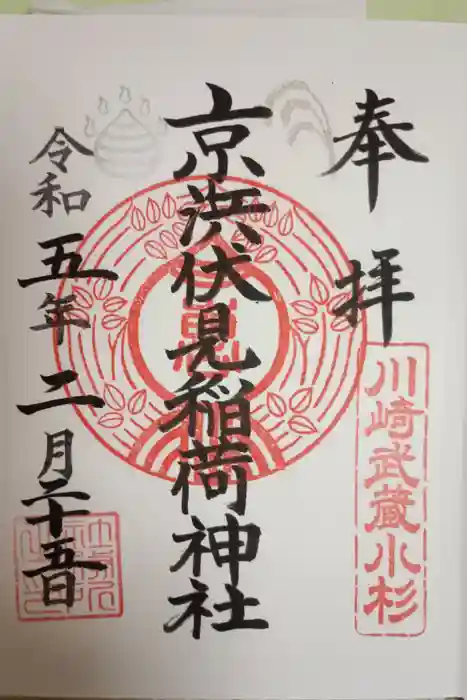 奉拝
川崎武蔵小杉
京浜伏見稲荷神社
令和五年二月二十五日